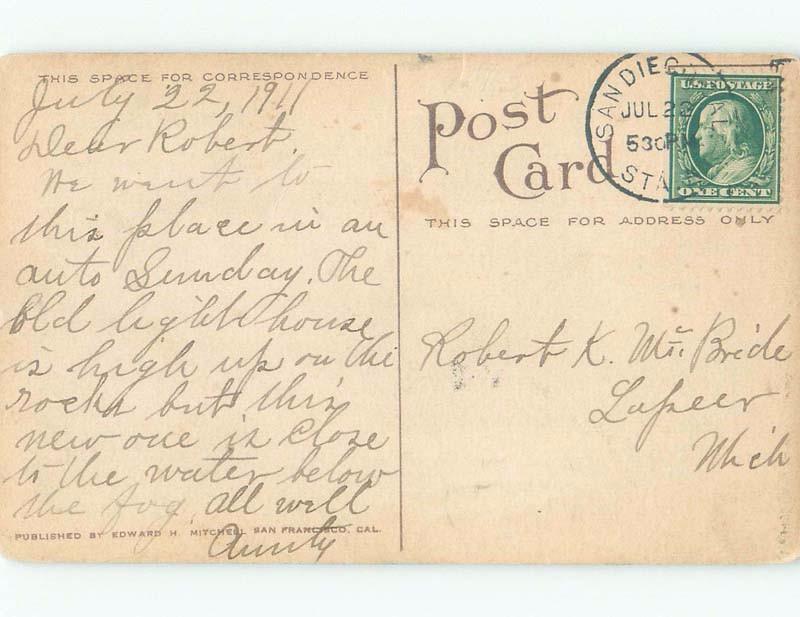 THIS SPACE FOR CORRESPONDENCE
July 22, 1911
Dear Robert.
We went to
this place in an
auto Sunday. The
old light house
is high up on the
rocks but this
new one is close
to the water below
the fog. all well
Aunty
PUBLISHED BY EDWARD H. MITCHELL SAN FRANCISCO, CAL.
Post
Card
THIS SPACE FOR ADDRESS ONLY
SAN DIEGO, CAL
JUL 22
530PM
STA
U.S. POSTAGE
ONE CENT
Robert K. McBride
Lapeer
Mich